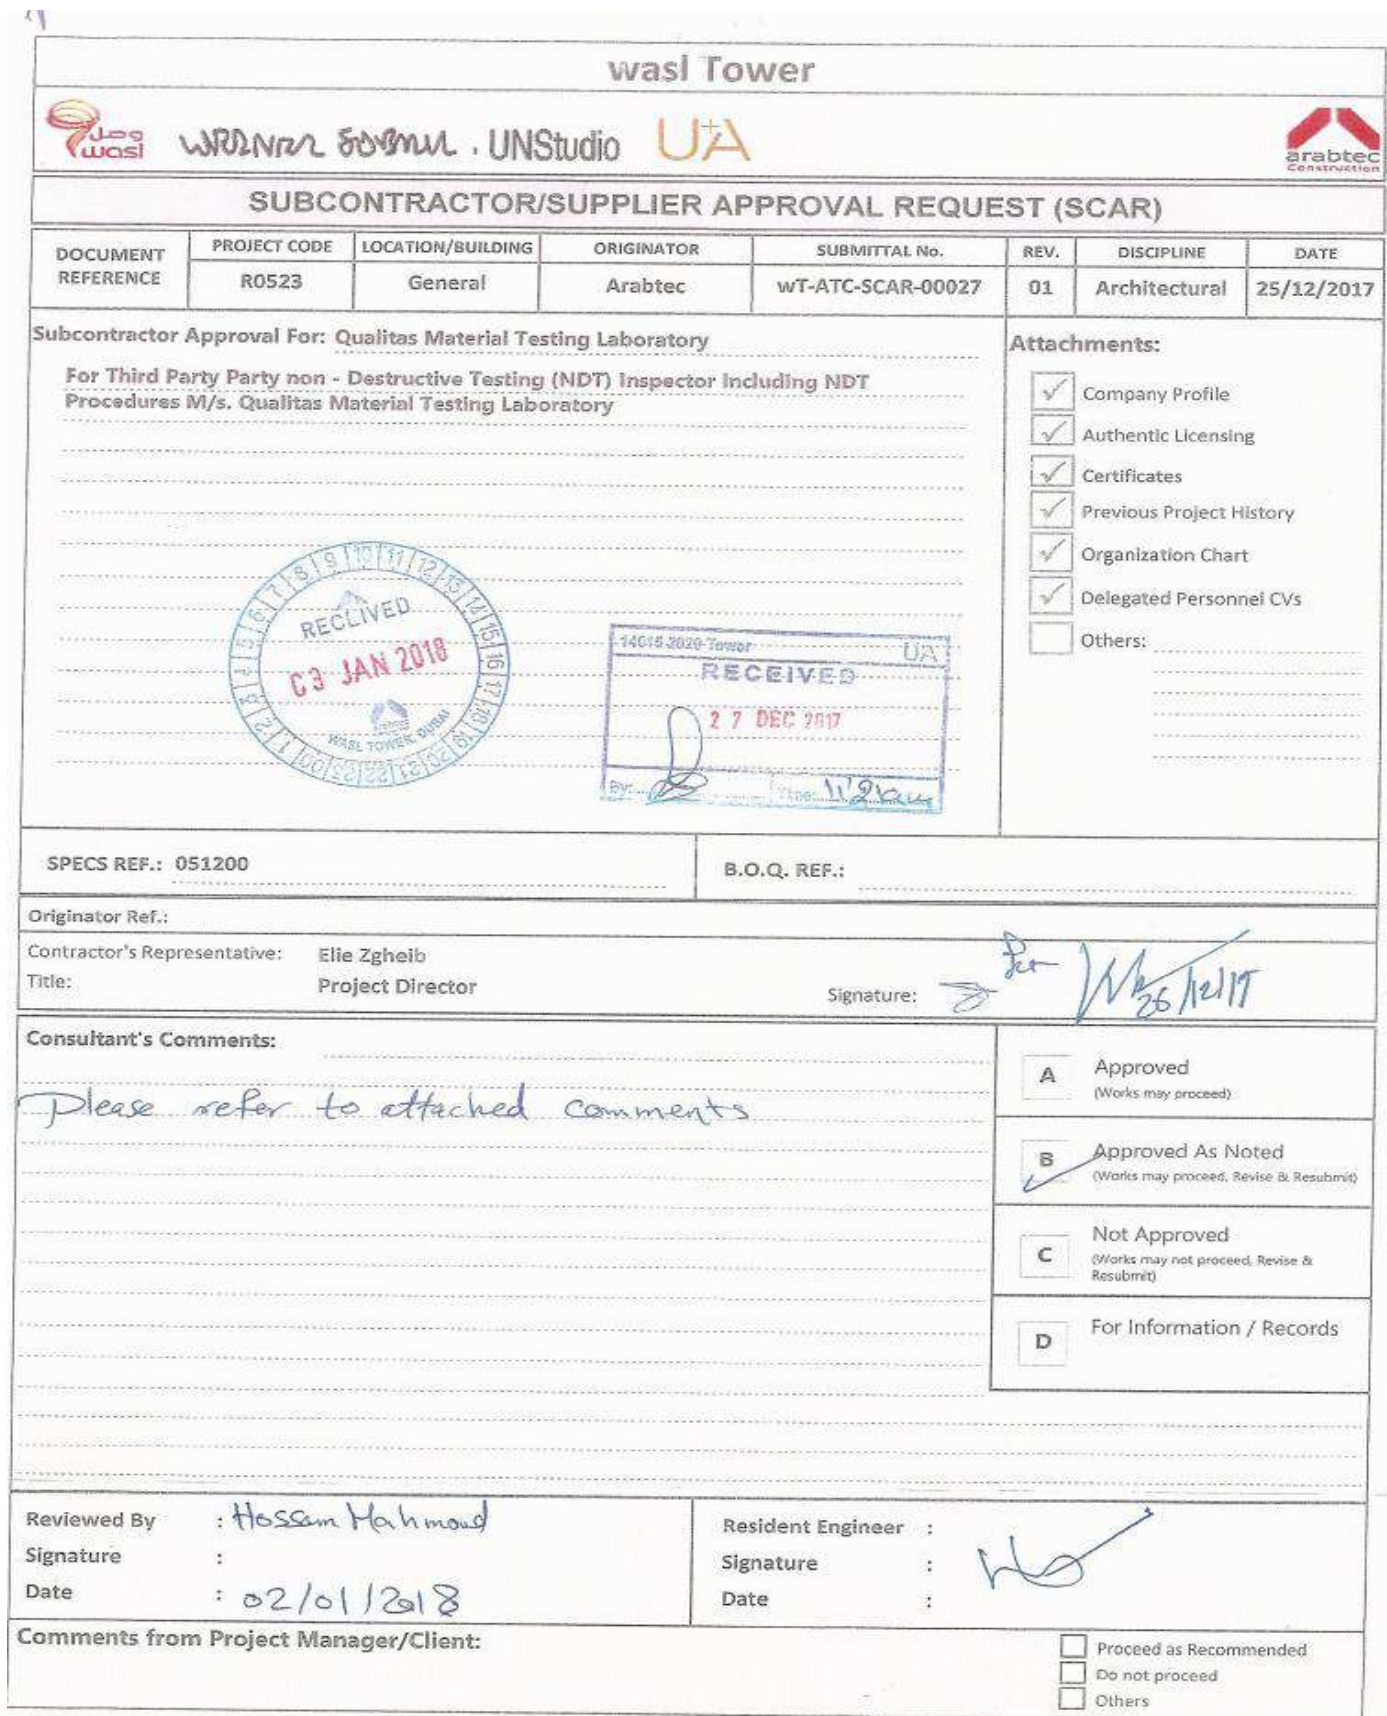 wasl Tower
وصل
wasl
WERNER SOBEK . UNStudio U+A
arabtec
Construction
SUBCONTRACTOR/SUPPLIER APPROVAL REQUEST (SCAR)
DOCUMENT REFERENCE
PROJECT CODE LOCATION/BUILDING ORIGINATOR SUBMITTAL No. REV. DISCIPLINE DATE
R0523 General Arabtec wT-ATC-SCAR-00027 01 Architectural 25/12/2017
Subcontractor Approval For: Qualitas Material Testing Laboratory
For Third Party Party non - Destructive Testing (NDT) Inspector Including NDT
Procedures M/s. Qualitas Material Testing Laboratory
Attachments:
Company Profile
Authentic Licensing
Certificates
Previous Project History
Organization Chart
Delegated Personnel CVs
Others:
00 1 2 3 4 5 6 7 8 9 10 11 12 13 14 15 16 17 18 19 20 21 22 23
RECEIVED
03 JAN 2018
WASL TOWER DUBAI
14015-2020-Tower UA
RECEIVED
27 DEC 2017
By: Time:
SPECS REF.: 051200
B.O.Q. REF.:
Originator Ref.:
Contractor's Representative: Elie Zgheib
Title: Project Director
Signature: 26/12/17
Consultant's Comments:
Please refer to attached comments
A Approved
(Works may proceed)
B Approved As Noted
(Works may proceed, Revise & Resubmit)
C Not Approved
(Works may not proceed, Revise &
Resubmit)
D For Information / Records
Reviewed By : Hossam Mahmoud
Signature :
Date : 02/01/2018
Resident Engineer :
Signature :
Date :
Comments from Project Manager/Client:
Proceed as Recommended
Do not proceed
Others